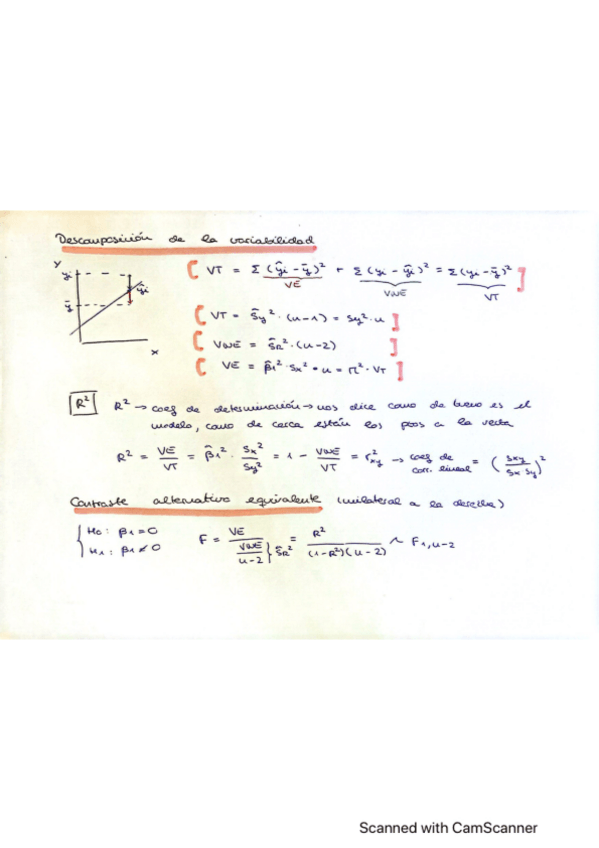 Descomposición de la variabilidad
y
yi
ȳ
ŷi
x
[ VT = Σ (ŷi - ȳ)² + Σ (yi - ŷi)² = Σ (yi - ȳ)² ]
VE VNE VT
[ VT = ŝy² · (n-1) = sy² · n ]
[ VNE = ŝR² · (n-2) ]
[ VE = β̂1² · sx² · n = r² · VT ]
R² R² → coef de determinación → nos dice como de bueno es el
modelo, como de cerca están los ptos a la recta
R² = VE/VT = β̂1² · sx²/sy² = 1 - VNE/VT = r²xy → coef de corr. lineal = (sxy / sx sy)²
Contraste alternativo equivalente (unilateral a la derecha)
{ H0: β1 = 0
H1: β1 ≠ 0
F = VE / (VNE/n-2) } ŝR² = R² / (1-R²)(n-2) ~ F1,n-2
Scanned with CamScanner